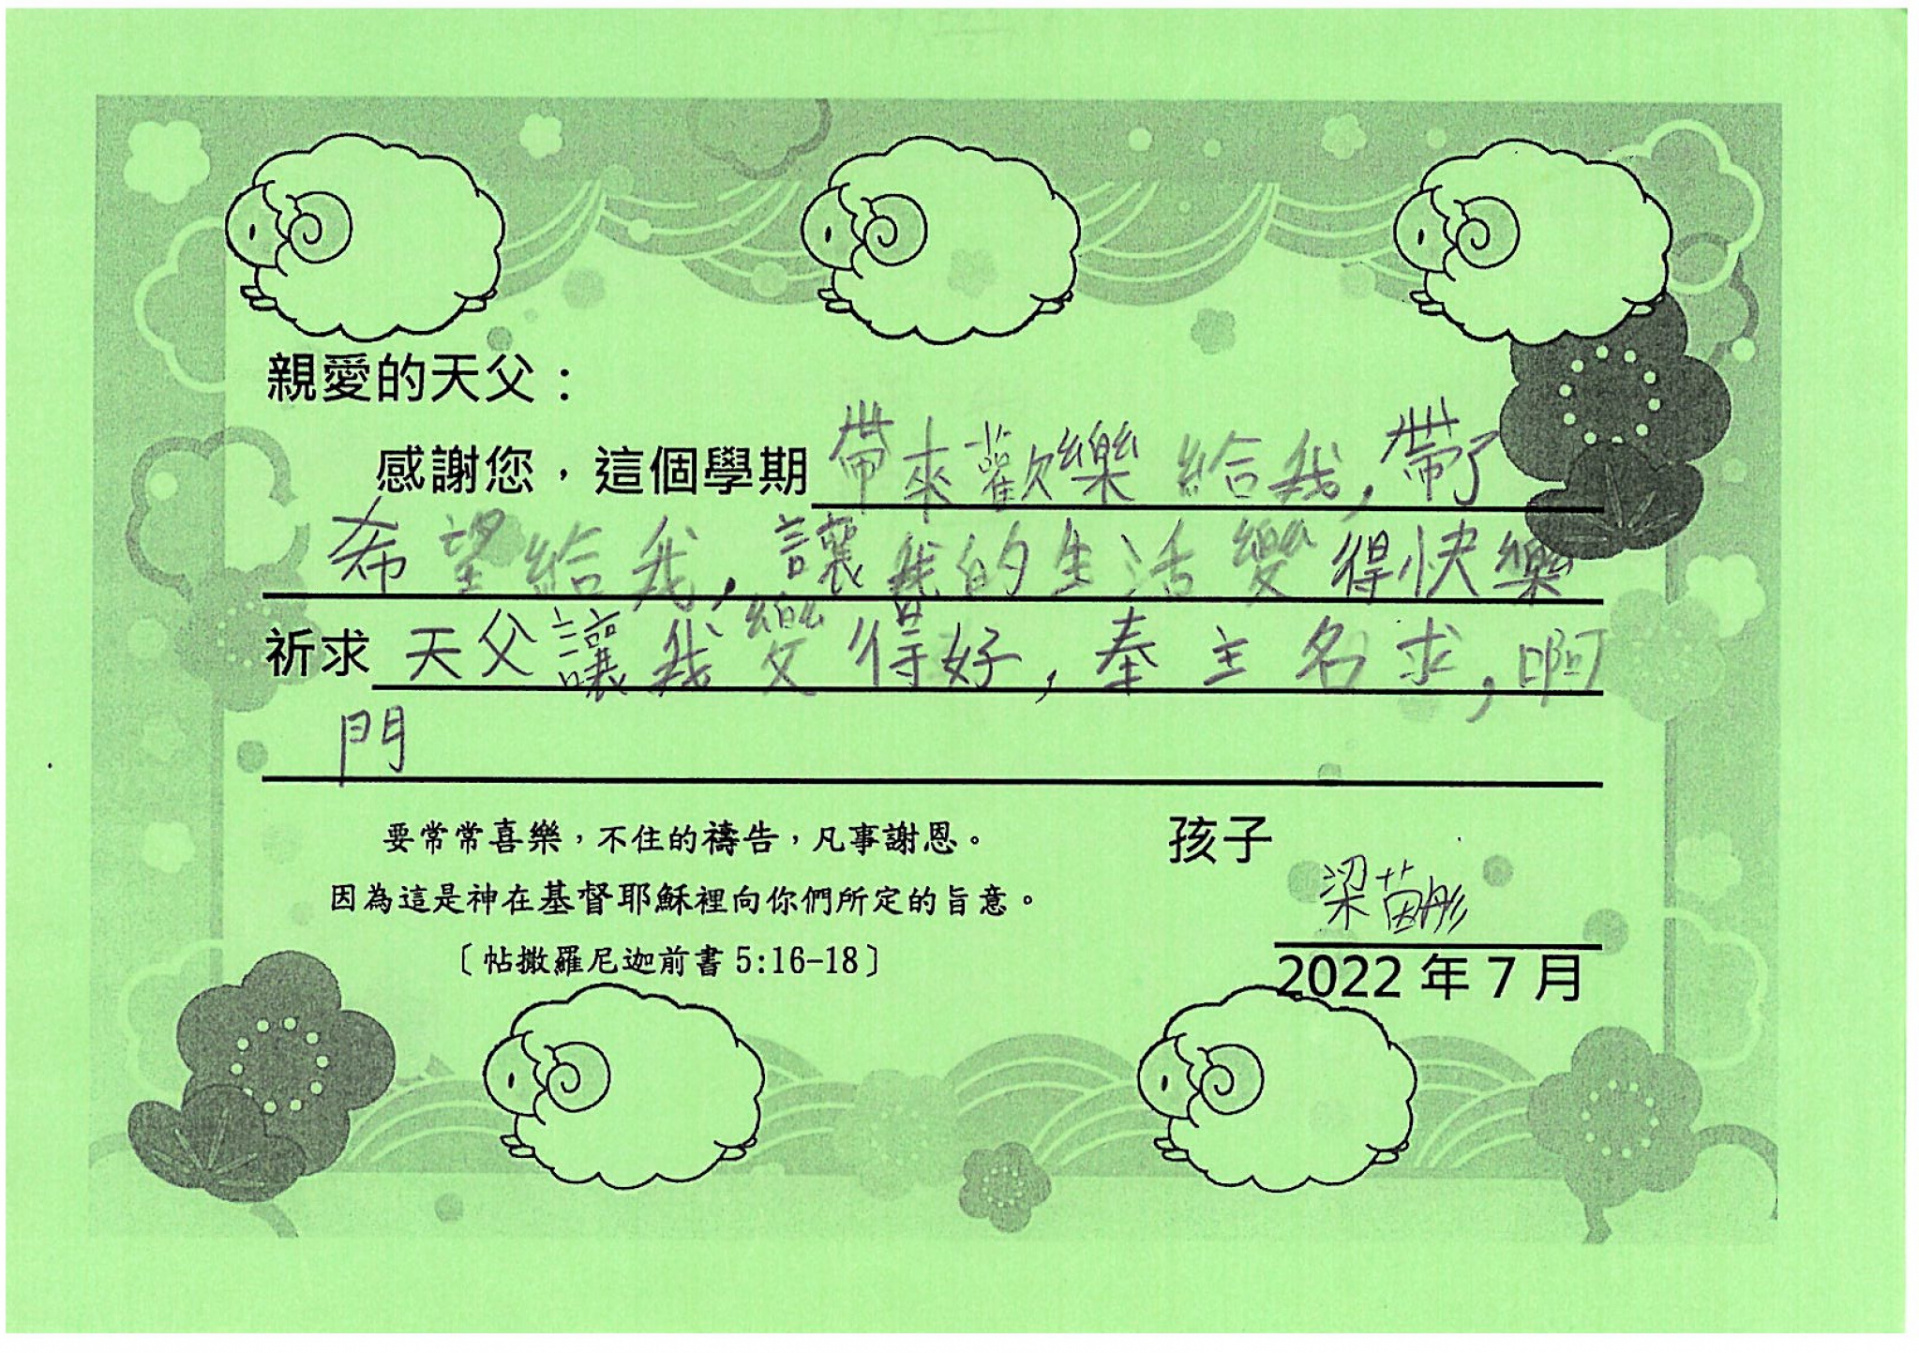 親愛的天父：
感謝您，這個學期帶來歡樂給我，帶了
希望給我，讓我的生活變得快樂
祈求天父讓我變得好，奉主名求，啊
門
要常常喜樂，不住的禱告，凡事謝恩。
因為這是神在基督耶穌裡向你們所定的旨意。
〔帖撒羅尼迦前書 5:16-18〕
孩子
梁茵彤
2022 年 7 月